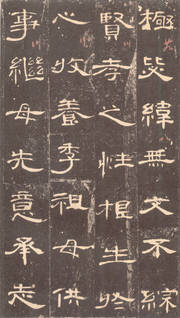 極㱔緯無文不綜
賢孝之性根生於
心收養季祖母供
事繼母先意承志